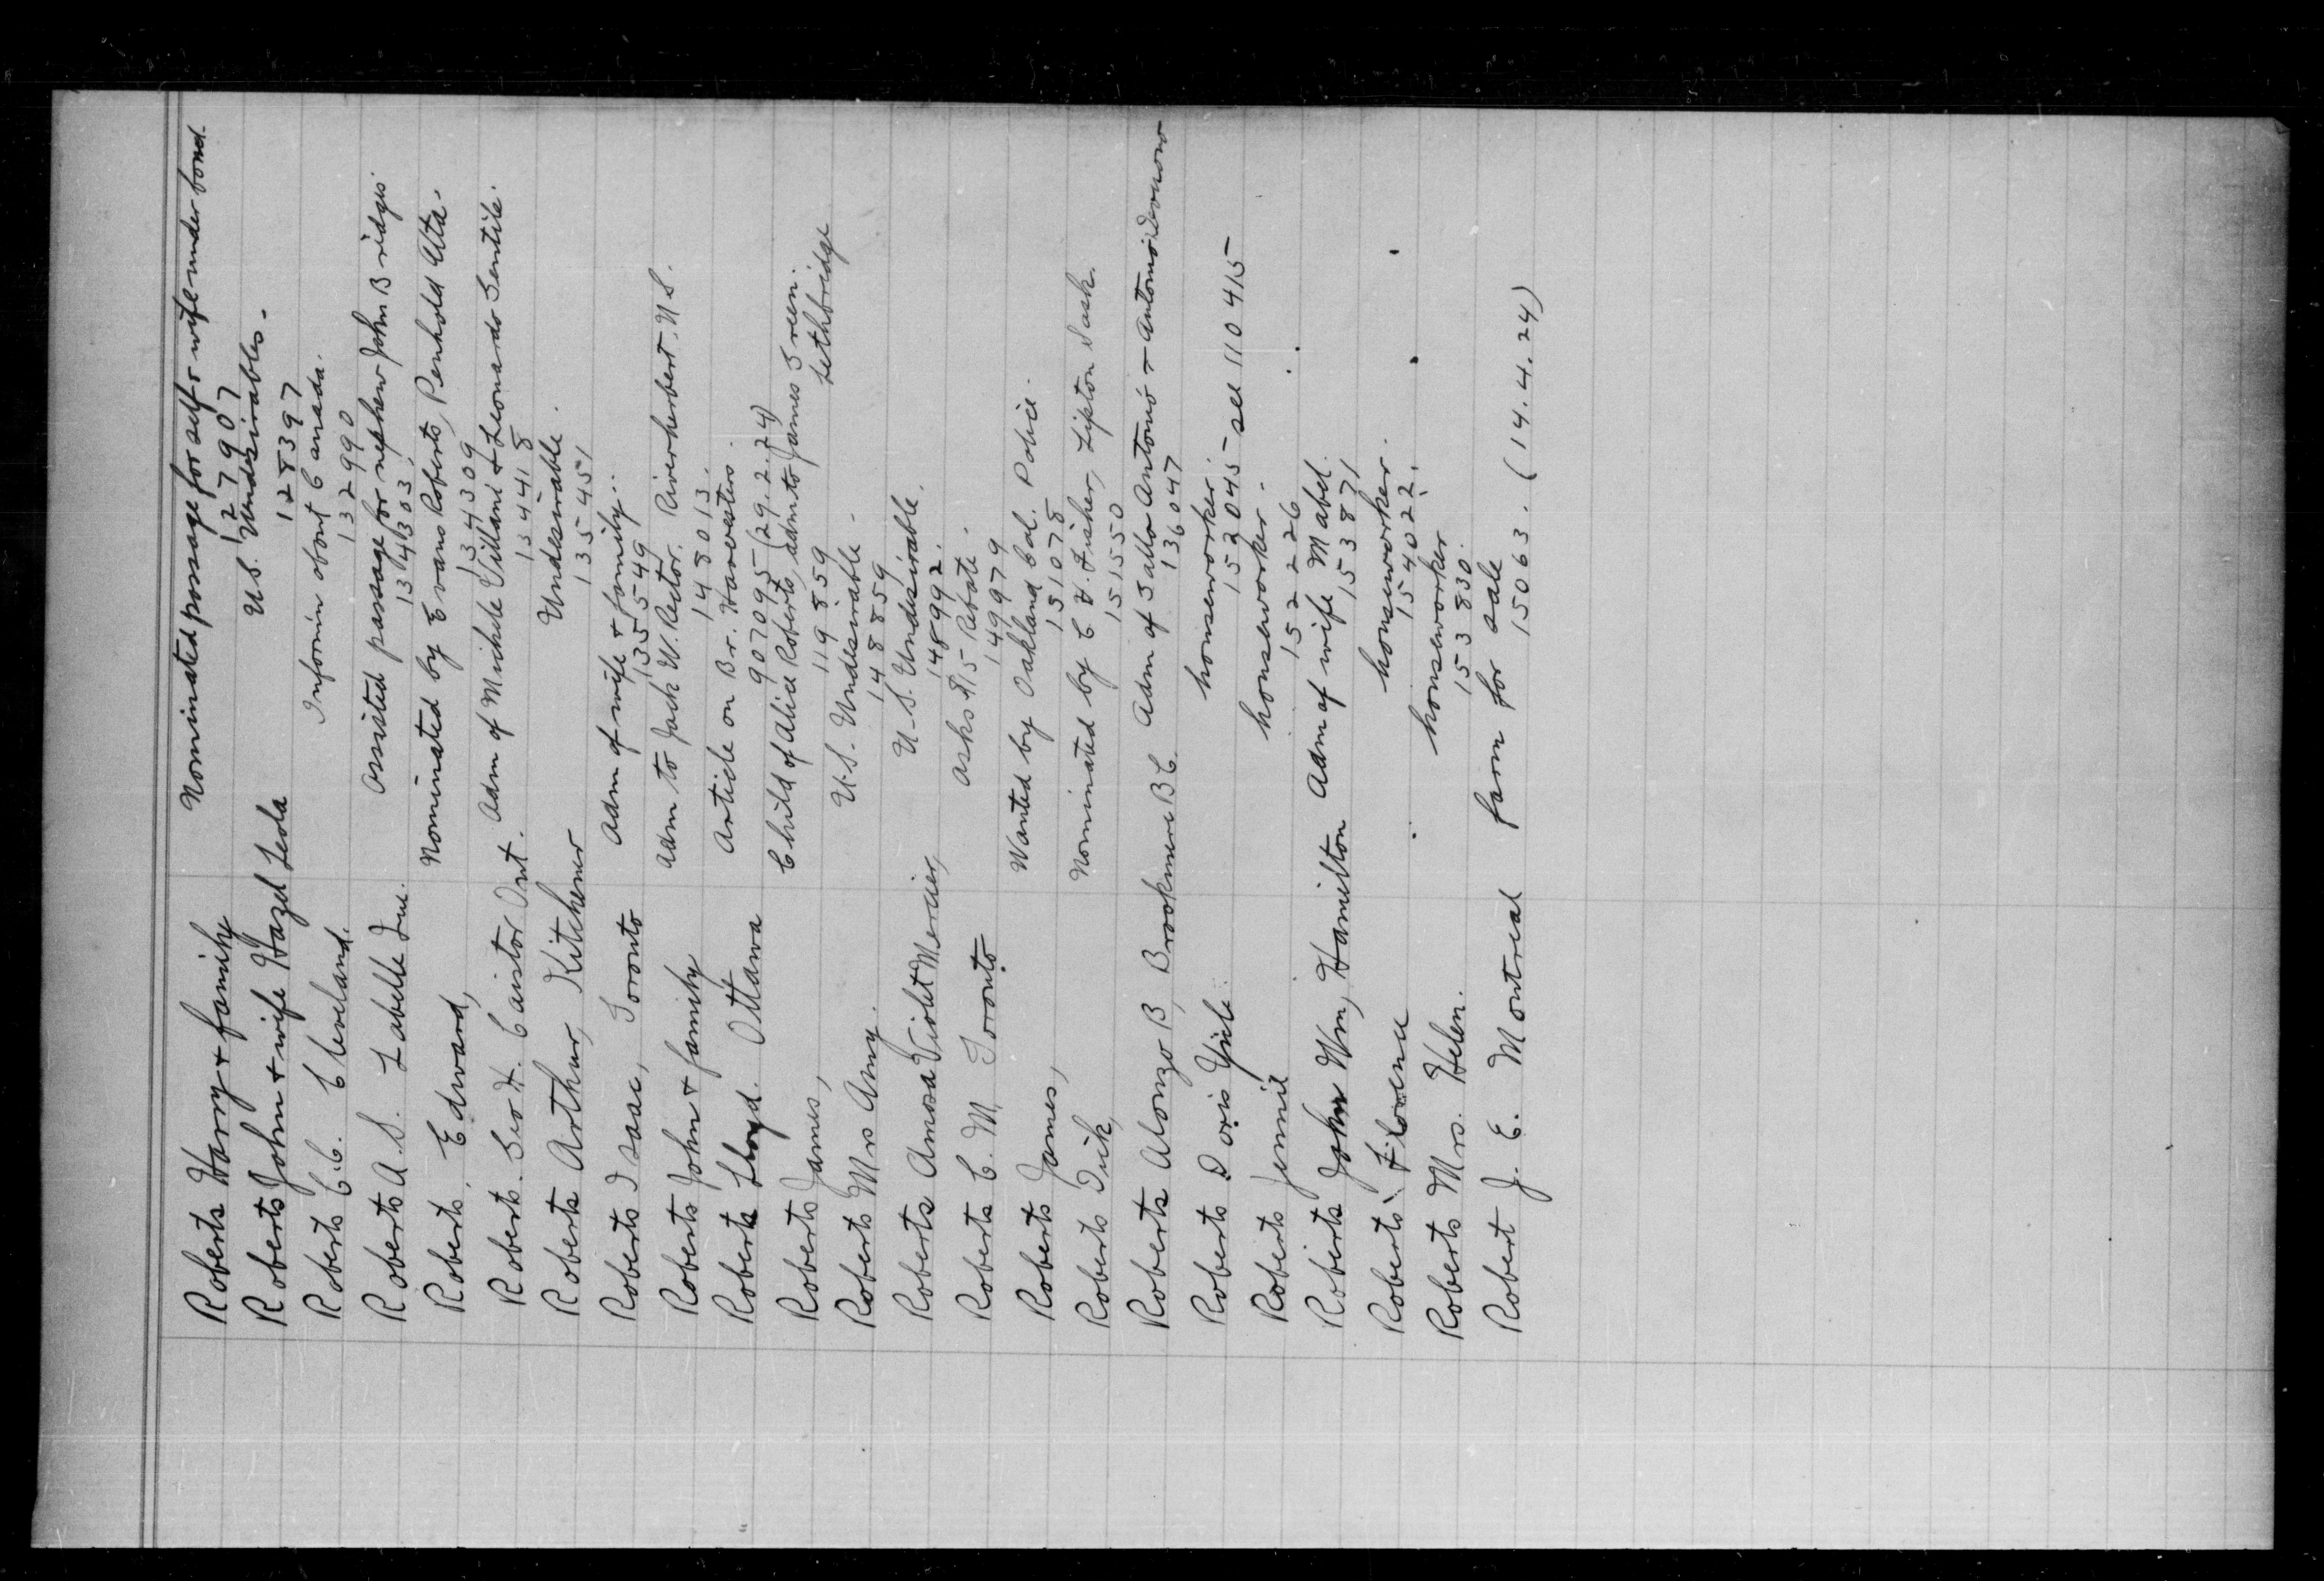 Roberts Harry & family Nominated passage for self & wife under bond.
127907
Roberts John & wife Hazel Leola U.S. Undesirables.
128397
Roberts C.C. Cleveland. Inform about Canada.
132990
Roberts A.S. Labelle Que. Assisted passage for nephew John Bridges
134303
Roberts, Edward, Nominated by Evans Roberts, Penhold Alta.
134309
Roberts. Geo H. Caistor Ont. Adm of Michele Villani & Leonardo Gentile.
134418
Roberts Arthur, Kitchener Undesirable.
135451
Roberts Isaac, Toronto Adm of wife & family.
135549
Roberts John & family Adm to Jack W. Rector. Riverherbert. N.S.
148013.
Roberts Lloyd. Ottawa Article on Br. Harvesters.
907095 (29.2.24)
Roberts James, Child of Alice Roberts, adm to James Green.
119859 Lethbridge
Roberts Mrs Amy. U.S. Undesirable.
148859
Roberts Amosa Violet Mercier, U.S. Undesirable.
148992.
Roberts C. M. Toronto asks $15 Rebate.
149979
Roberts James, Wanted by Oakland Cal. Police.
151078
Roberts Dick, Nominated by C. H. Fisher, Lipton Sask.
151550
Roberts Alonzo B, Brookmere B.C. Adm of Antonio & Antonio
136047
Roberts Doris houseworker.
152045 - see 110415
Roberts Jennie houseworker.
152226
Roberts John Wm, Hamilton Adm of wife Mabel.
153871
Roberts Florence houseworker.
154022.
Roberts Mrs. Helen. houseworker
153830.
Robert J. E. Montreal farm for sale
15063. (14.4.24)